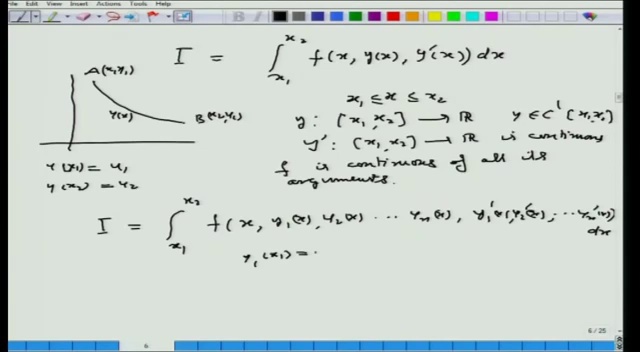 Edit View Insert Actions Tools Help
I = ∫_{x₁}^{x₂} f(x, y(x), y'(x)) dx
A(x₁,y₁)
y(x)
B(x₂,y₂)
x₁ ≤ x ≤ x₂
y : [x₁, x₂] → ℝ y ∈ C' [x₁, x₂]
y' : [x₁, x₂] → ℝ is continuous
f is continuous of all its
arguments.
y(x₁) = y₁
y(x₂) = y₂
I = ∫_{x₁}^{x₂} f(x, y₁(x), y₂(x) ... yₙ(x), y₁'(x), y₂'(x), ... yₙ'(x))
dx
y₁(x₁) =
6 / 25
6